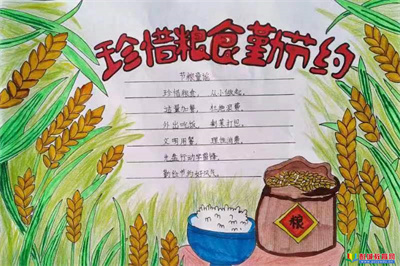 珍惜粮食勤节约
节粮童谣
珍惜粮食， 从小做起。
适量加餐， 杜绝浪费。
外出吃饭， 剩菜打包。
文明用餐， 理性消费。
光盘行动
勤俭节约好风气。
粮